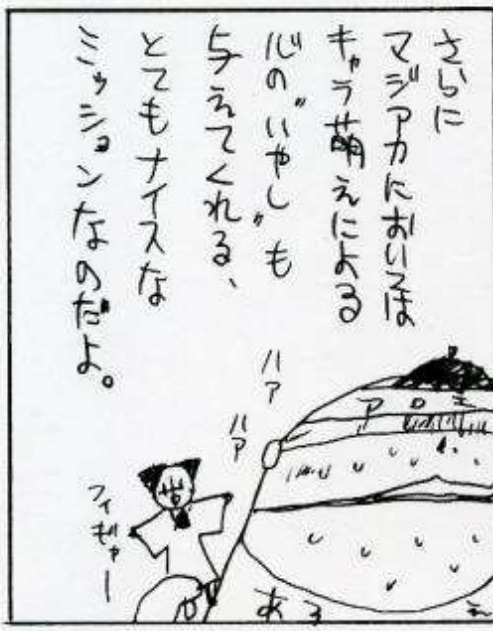 さらに
マジアカにおいては
キャラ萌えによる
心の"いやし"も
与えてくれる、
とてもナイスな
ミッションなのだよ。
ハア
ハア
フィギャー